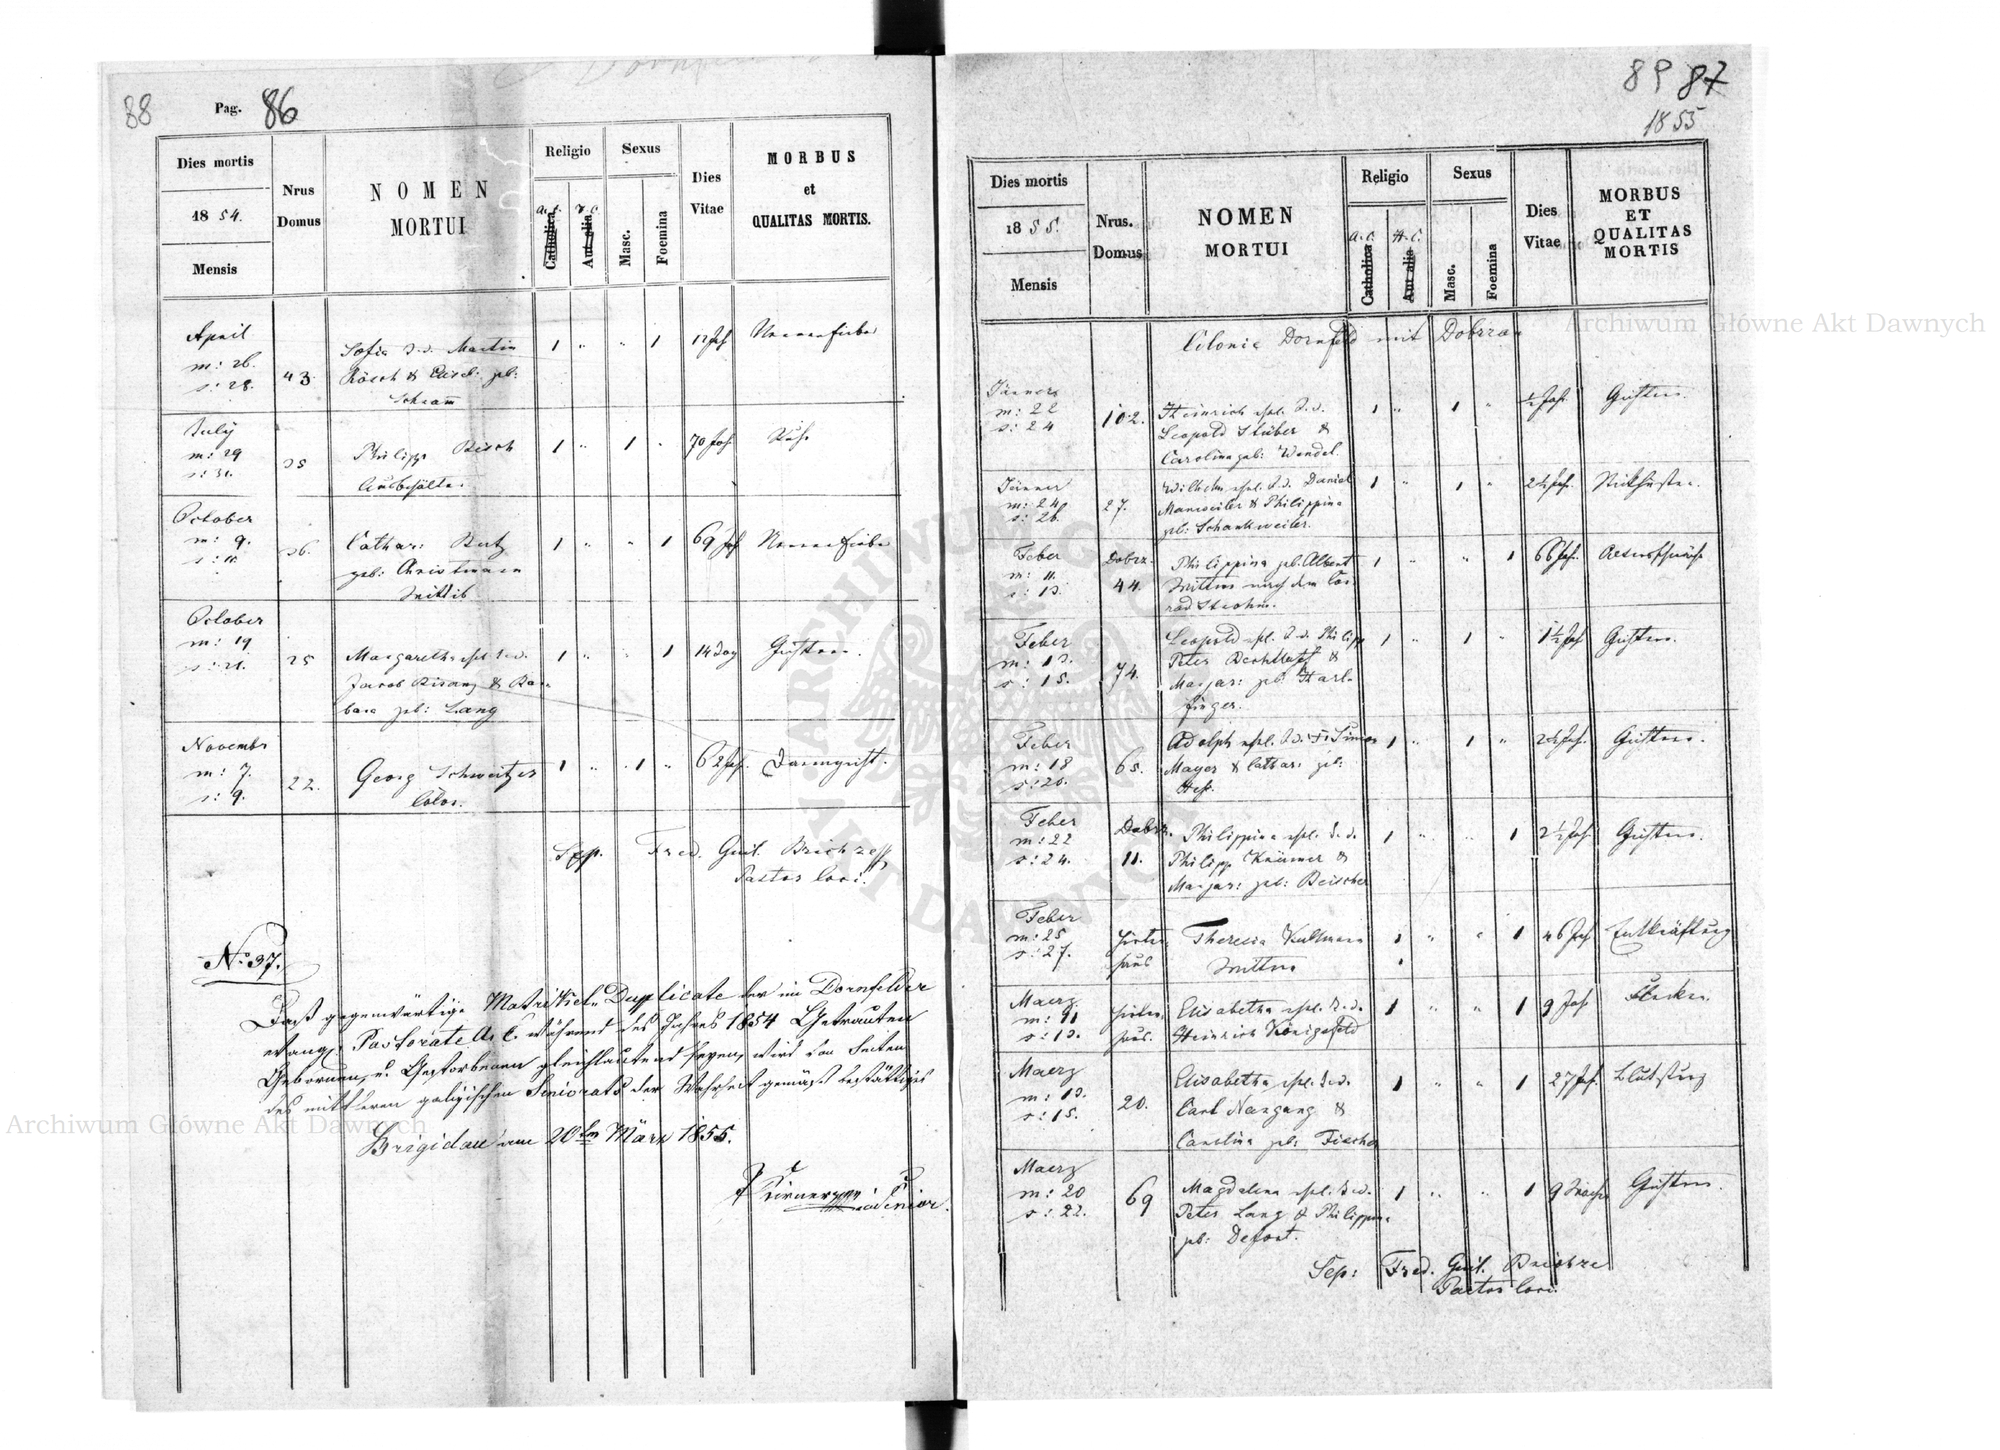 88
Pag. 86
Dies mortis
1854.
Mensis
Nrus
Domus
NOMEN
MORTUI
Religio
A. C.
Catholica
H. C.
Aut alia
Sexus
Masc.
Foemina
Dies
Vitae
MORBUS
et
QUALITAS MORTIS.
April
m: 26.
s: 28.
43.
Sofia d. Martin
Rösch & Elisab. geb:
Schramm
1 " " 1
12 Jah
Nervenfieber
July
m: 29
s: 31.
35
Philipp Bisch
Ausbehälter
1 " 1 "
70 Jah
Ruhr
October
m: 9.
s: 11.
36.
Cathar: Butz
geb: Christmann
Wittib
1 " " 1
69 Jah
Nervenfieber
October
m: 19
s: 21.
25
Margaretha ehl. d.
Jacob Bisanz & Bar-
bara geb: Lang
1 " " 1
14 Tag
Gichtern.
Novembr
m: 7.
s: 9.
22.
Georg Schweitzer
Colon.
1 " 1 "
62 Jah.
Darmgicht.
Sep. Fred. Guil. Brichze
Pastor loci.
No 37.
Daß gegenwärtige Matrikeln Duplicate der im Dornfelder
evang: Pastorate A. C. während des Jahres 1854 Getrauten
Gebornen, u. Gestorbenen gleichlautend seyen, wird von Seiten
des mittleren galizischen Seniorats der Wahrheit gemäß bestättiget
Brigidau am 20ten März 1855.
Senior.
89 87
1855
Dies mortis
1855.
Mensis
Nrus.
Domus
NOMEN
MORTUI
Religio
A. C.
Catholica
H. C.
Aut alia
Sexus
Masc.
Foemina
Dies
Vitae
MORBUS
ET
QUALITAS
MORTIS
Colonie Dornfeld mit Dobrzan
Jänner
m: 22
s: 24
102.
Heinrich ehl. d.
Leopold Stüber &
Carolina geb: Wendel.
1 " 1 "
½ Jah.
Gichtern.
Jänner
m: 24
s: 26.
27.
Wilhelm ehl. d. Daniel
Manweiler & Philippina
geb: Schankweiler.
1 " 1 "
2½ Jah.
Stickhusten.
Feber
m: 11.
s: 13.
Dobrz.
44.
Philippina geb. Albert
Wittwe nach dem Con-
rad Strohm.
1 " " 1
66 Jah.
Altersschwäche
Feber
m: 13.
s: 15.
74.
Leopold ehl. d. Philipp
Peter Bechtloff &
Margar: geb: Harl-
finger.
1 " 1 "
1½ Jah
Gichtern.
Feber
m: 18
s: 20.
65.
Adolph ehl. d. Simon
Mayer & Cathar: geb:
Heß.
1 " 1 "
2½ Jah.
Gichtern.
Feber
m: 22
s: 24.
Dobrz.
11.
Philippina ehl. d.
Philipp Krämer &
Margar: geb: Beischer
1 " " 1
2½ Jah
Gichtern.
Feber
m: 25
s: 27.
Hirten
haus
Theresia Kullmann
Wittwe
1 " " 1
46 Jah
Entkräftung
Maerz
m: 11
s: 13.
Hirten
haus.
Elisabetha ehl. d.
Heinrich Königsfeld
1 " " 1
9 Jah
Flecken.
Maerz
m: 13.
s: 15.
20.
Elisabetha ehl. d.
Carl Nargang &
Carolina geb: Fischer
1 " " 1
27 Jah.
Blutsturz
Maerz
m: 20
s: 22.
69
Magdalena ehl. d.
Peter Lang & Philippina
geb: Defort.
1 " " 1
9 Woch
Gichtern.
Sep: Fred. Guil. Brichze
Pastor loci.
Archiwum Główne Akt Dawnych
Archiwum Główne Akt Dawnych
ARCHIWUM GŁÓWNE AKT DAWNYCH